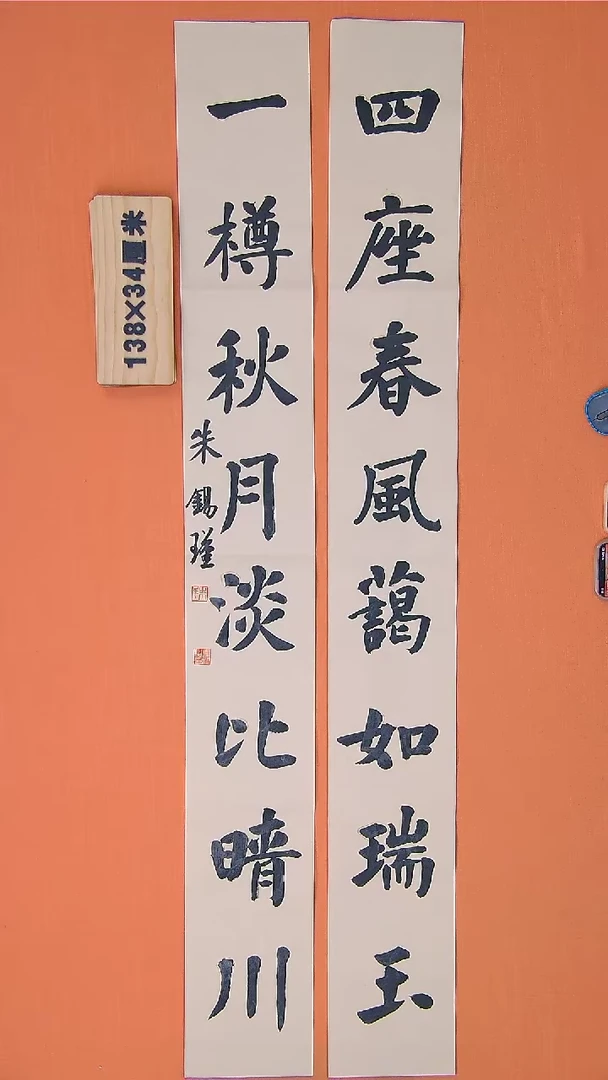 四座春風藹如瑞玉
一樽秋月淡比晴川
朱錫瑾
138×34厘米